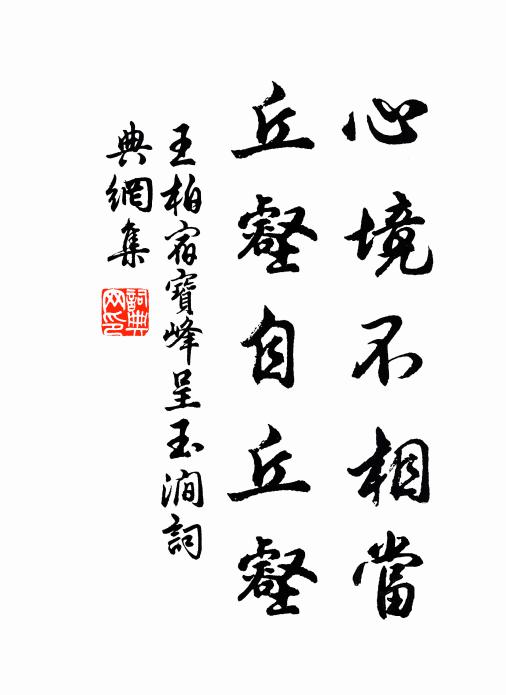 心境不相當
丘壑自丘壑
王柏宿寶峰呈玉澗詞
典網集
詞典網印